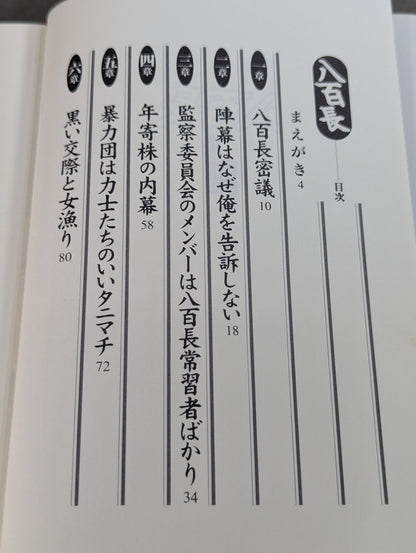 八百長
目次
まえがき 4
一章 八百長密議 10
二章 陣幕はなぜ俺を告訴しない 18
三章 監察委員会のメンバーは八百長常習者ばかり 34
四章 年寄株の内幕 58
五章 暴力団は力士たちのいいタニマチ 72
六章 黒い交際と女漁り 80